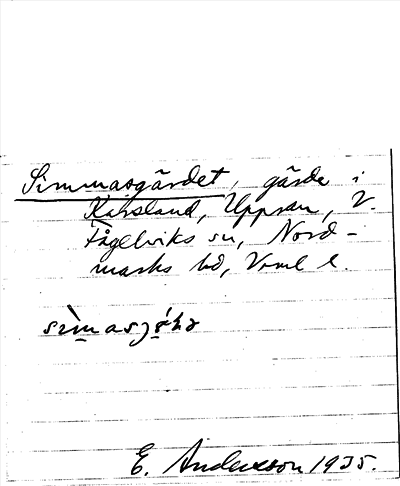 Simmasgärdet, gärde i
Karsland, Uppsan, V.
Fågelviks sn, Nord-
marks hd, Vrml l.
E. Andersson 1935.